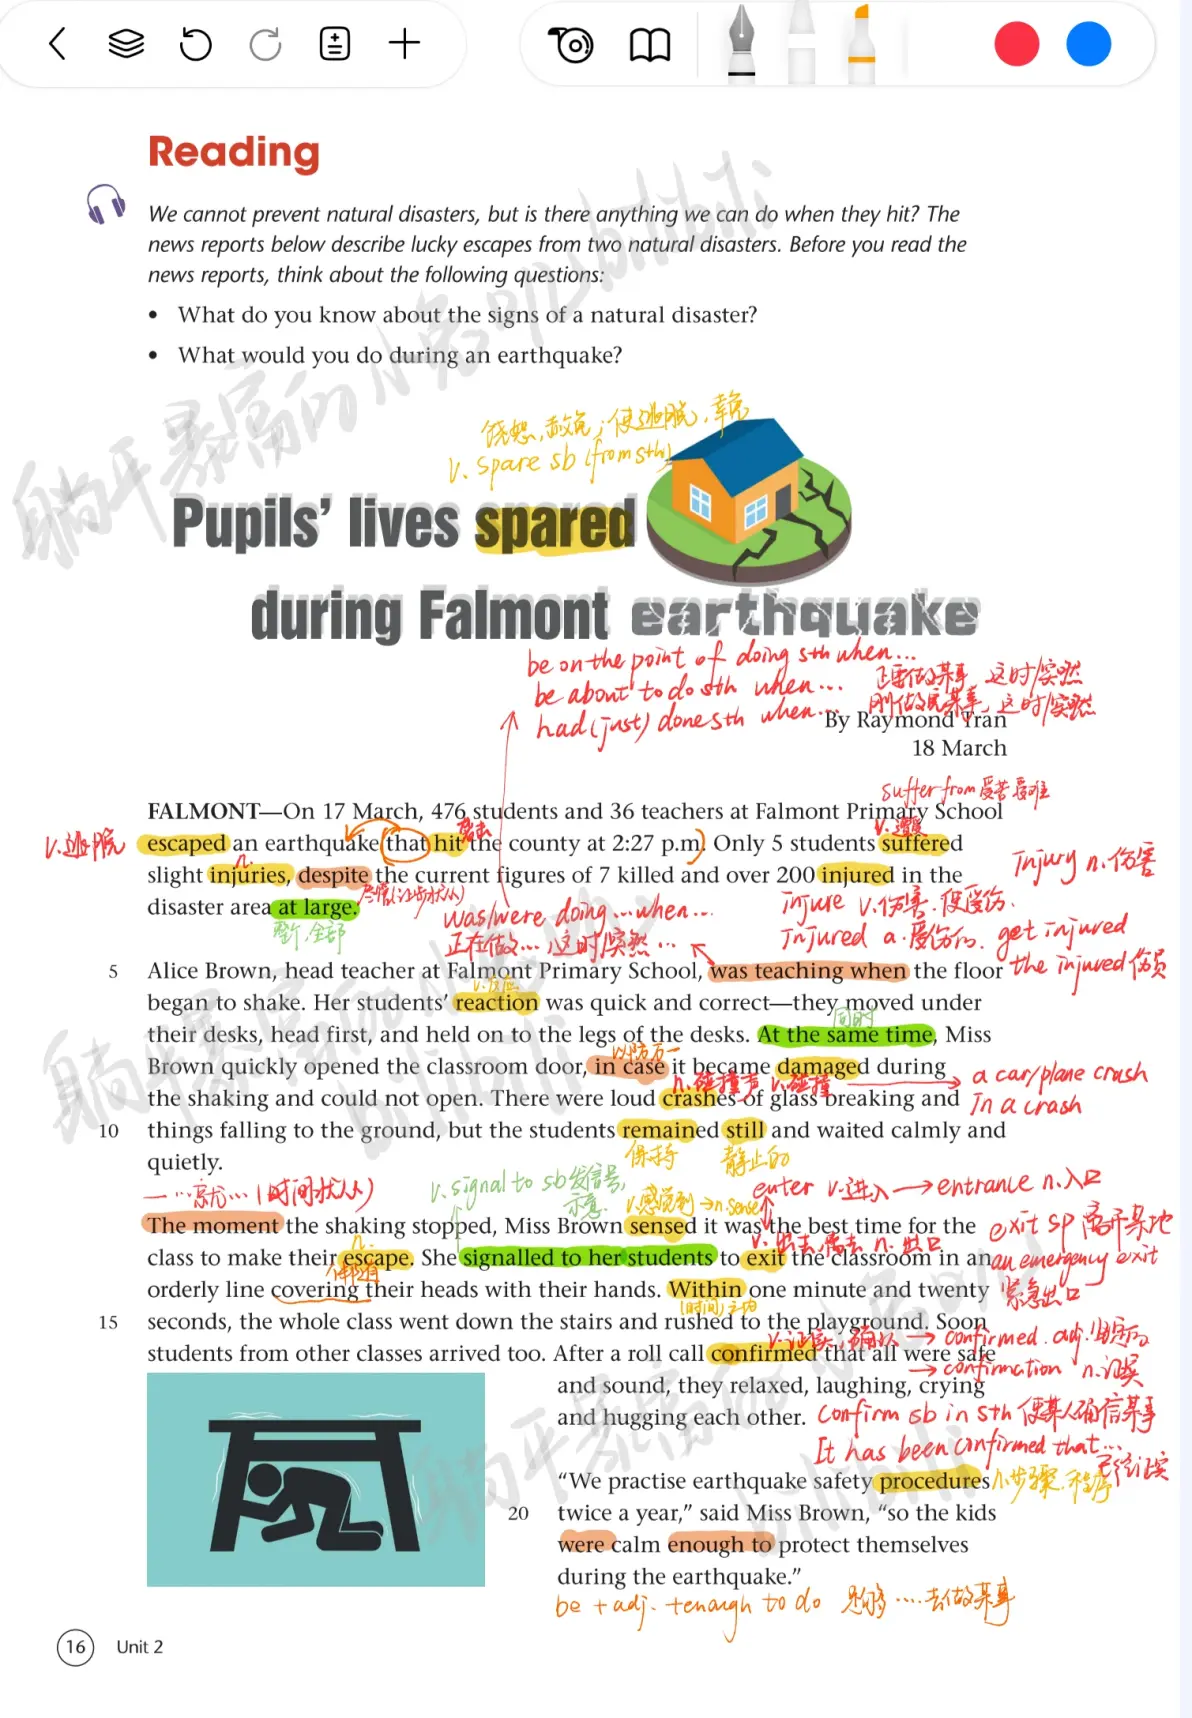 Reading
We cannot prevent natural disasters, but is there anything we can do when they hit? The
news reports below describe lucky escapes from two natural disasters. Before you read the
news reports, think about the following questions:
• What do you know about the signs of a natural disaster?
• What would you do during an earthquake?
饶恕,赦免;使逃脱,幸免
v. spare sb (from sth)
Pupils' lives spared
during Falmont earthquake
be on the point of doing sth when...
be about to do sth when... 正要做某事,这时/突然
had (just) done sth when... 刚做完某事,这时/突然
By Raymond Tran
18 March
suffer from 受苦受难
FALMONT—On 17 March, 476 students and 36 teachers at Falmont Primary School
v.逃脱 袭击 v.遭受
escaped an earthquake that hit the county at 2:27 p.m. Only 5 students suffered
n. injury n.伤害
slight injuries, despite the current figures of 7 killed and over 200 injured in the
injure v.伤害.使受伤.
disaster area at large.
整个,全部
was/were doing...when... injured a.受伤的. get injured
正在做...,这时/突然... the injured 伤员
5 Alice Brown, head teacher at Falmont Primary School, was teaching when the floor
began to shake. Her students' reaction was quick and correct—they moved under
同时
their desks, head first, and held on to the legs of the desks. At the same time, Miss
以防万一
Brown quickly opened the classroom door, in case it became damaged during
n.碰撞声 v.碰撞 a car/plane crash
the shaking and could not open. There were loud crashes of glass breaking and
in a crash
10 things falling to the ground, but the students remained still and waited calmly and
保持 静止的
quietly.
一…就…(时间状从) v.signal to sb 发信号,示意 v.感觉到→n.sense enter v.进入→entrance n.入口
The moment the shaking stopped, Miss Brown sensed it was the best time for the
n. v.出去,离去 n.出口 exit sp 离开某地
class to make their escape. She signalled to her students to exit the classroom in an
an emergency exit
紧急出口
orderly line covering their heads with their hands. Within one minute and twenty
(时间)之内
15 seconds, the whole class went down the stairs and rushed to the playground. Soon
v.证实,确认 → confirmed adj.
students from other classes arrived too. After a roll call confirmed that all were safe
→ confirmation n.证实
and sound, they relaxed, laughing, crying
and hugging each other.
confirm sb in sth 使某人确信某事
It has been confirmed that...
“We practise earthquake safety procedures
n.步骤.程序
20 twice a year,” said Miss Brown, “so the kids
were calm enough to protect themselves
during the earthquake.”
be + adj. + enough to do 足够....去做某事
16 Unit 2
躺平暴富的小
bilibili